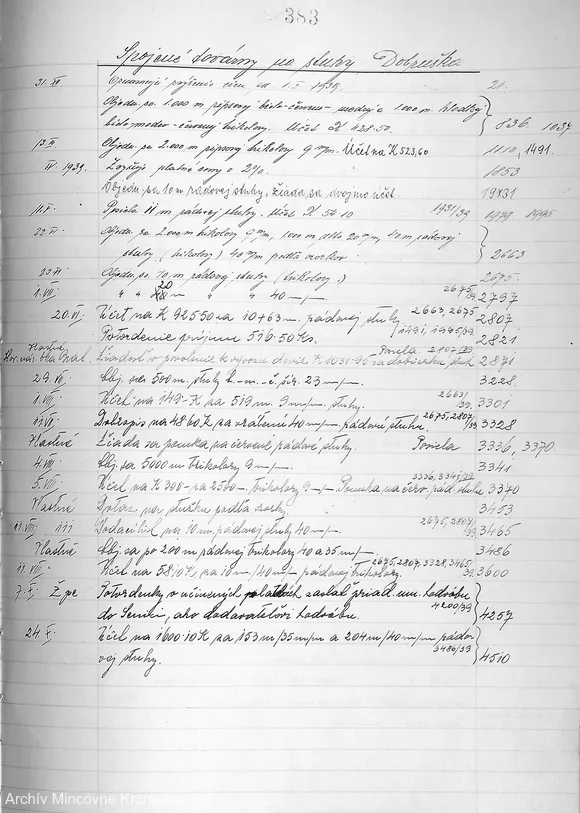 383
Spojené továrny na stuhy Dobruška
31. III. Oznamujú zvýšenie cien od 1.5. 1939. 21.
Objedn. so. 1.000 m rypsovej bielo-červeno-modrej a 1000 m. hladkej
bielo-modro-červenej trikolory. Účet K 428.50. 836. 1037
13. III. Objedn. sa 2.000 m rypsovej trikolory 9 m/m. Účet na K 523,60 1110, 1491.
IV. 1939. Zvyšujú platné ceny o 2%. 1053
Objedn. sa 10 m rádovej stuhy, žiada sa dvojmo účet. 1931
11. V. Posiela 11 m rádovej stuhy. Účet K 56.10 1931/39 1979 1995
22. VI. Objedn. sa 2.000 m trikolory 9 m/m, 1000 m 20 m/m, 40 m rádovej
stuhy (trikolory) 40 m/m podľa vzorkov 2663
Objedn. sa 10 m rádovej stuhy (trikolory.) 2675.
1. VII. " " 20 m " " 40 m/m. 2675/39 2797
20. VI. Účet na K 925.50 za 10+63 m. rádovej stuhy 2663, 2675 2807
Potvrdenie príjmu 516.50 Ks. 1491, 1995/39 2821
Vlastné Posiela 2807/39
Žiadosť o povolenie k vývozu devíz K 1030.95 za dodávku stuh 2871
29. VI. Obj. sa 500 m stuhy b.-m.-č. šír. 23 m/m. 3228
1. VIII. Účet na 149.-K za 519 m. 9 m/m. stuhy. 2663/39. 3301
Dobropis na 48.60 K za vrátenú 40 m/m. rádovú stuhu. 2675, 2807/39 3328
Vlastné Žiada sa ponuka na červené rádové stuhy. Posiela 3336, 3370.
4. VIII. Obj. sa 5000 m trikolory 9 m/m. 3341
5. VIII. Účet na K 300.- za 2500 m. trikolory 9 m/m Ponuka na červ. rád. stuhu 3336, 3341/39 3370
Vlastné Dotaz na stužku podľa vzorky. 3453
Dodací list na 10 m. rádovej stuhy 40 m/m. 2675, 2807/39 3465
Vlastné Obj. sa po 200 m rádovej trikolory 40 a 35 m/m. 3486
Účet na 58.10 K za 10 m/40 m/m. rádovej trikolory. 2675, 2807, 3328, 3465/39. 3600
7. X. Potvrdenky o učinených platbách zaslať priad. um. hodvábu
do Senici, ako dodávateľovi hodvábu. 4200/39 4257
24. X. Účet na 1600.10 K za 153 m/35 m/m a 204 m/40 m/m rádo-
vej stuhy. 3486/39 4510
Archív Mincovne Kremn